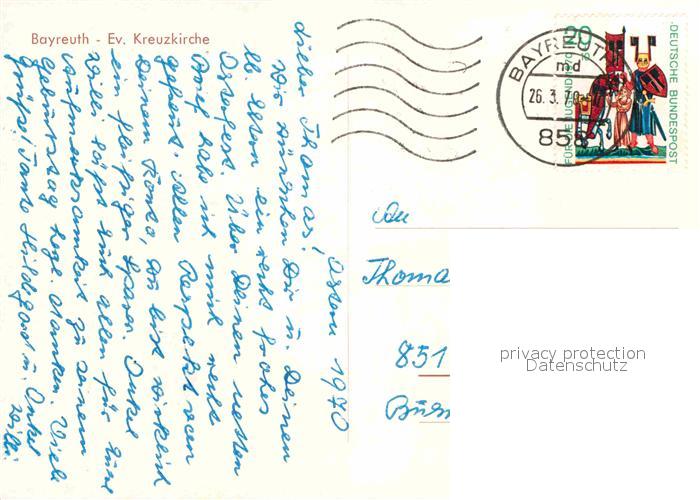 Bayreuth - Ev. Kreuzkirche
Ostern 1970
Lieber Thomas!
Wir wünschen Dir u. Deinen
lb. Eltern ein recht frohes
Osterfest. Über Deinen netten
Brief habe ich mich recht
gefreut. Allen Respekt von
Deinem Konto, Du bist wirklich
ein fleißiger Sparer. Onkel
Willi läßt Euch allen für Eure
Aufmerksamkeit zu seinem
Geburtstag herzl. danken. Viele
Grüße! Tante Hildegard u. Onkel
Willi
BAYREUTH
md
26.3.70
858
20
FÜR DIE JUGEND 1970
DEUTSCHE BUNDESPOST
An
Thoma
851
privacy protection
Datenschutz